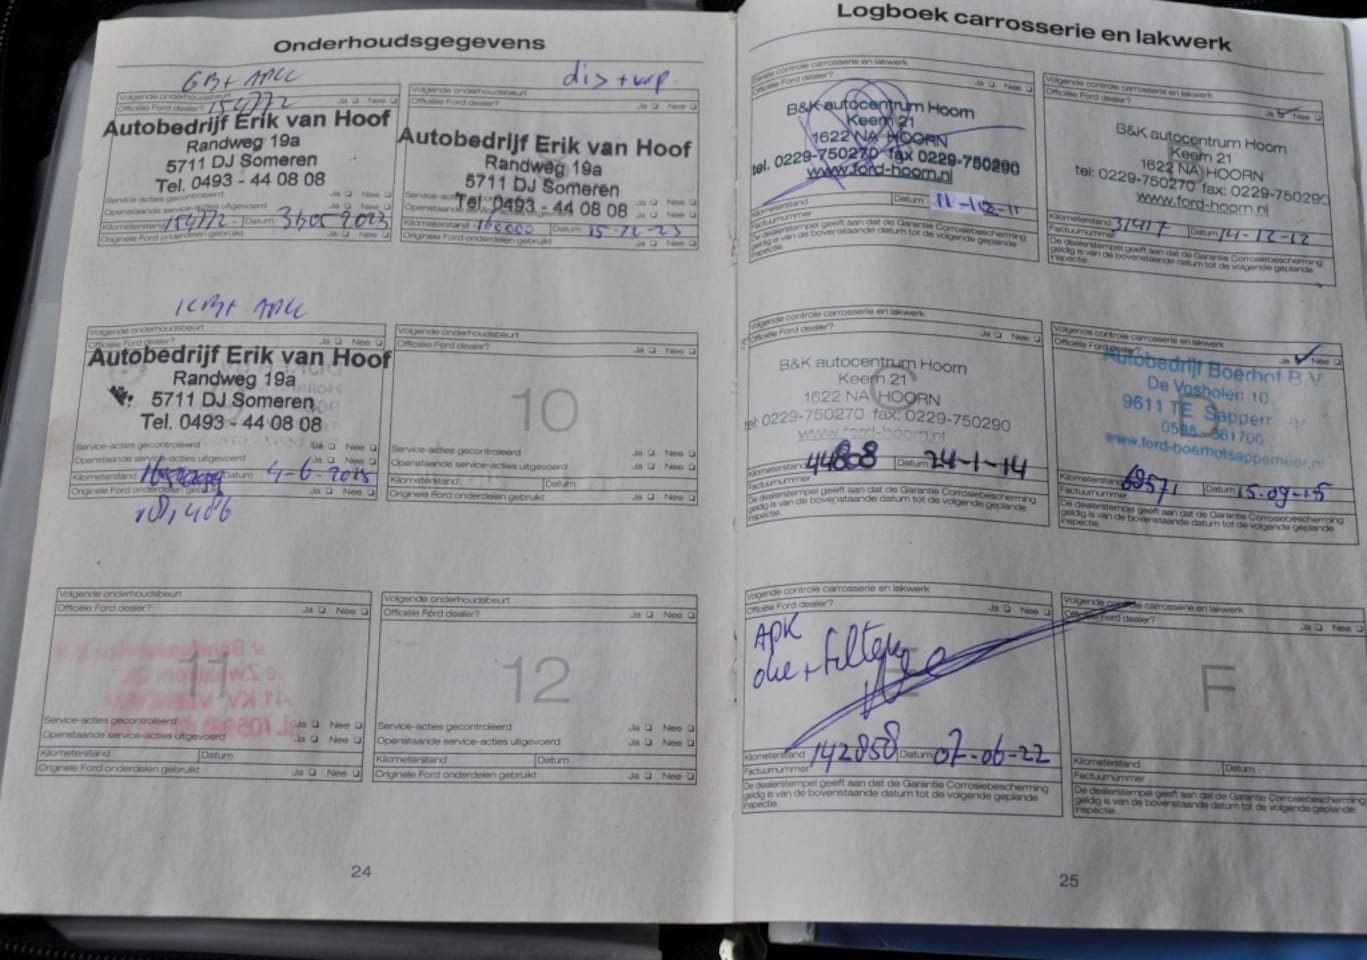 Onderhoudsgegevens
GB+ APK
Volgende onderhoudsbeurt
Officiële Ford dealer? Ja Nee
154772
Autobedrijf Erik van Hoof
Randweg 19a
5711 DJ Someren
Tel. 0493 - 44 08 08
Service-acties gecontroleerd Ja Nee
Openstaande service-acties uitgevoerd
Kilometerstand 154772 Datum 2023
Originele Ford onderdelen gebruikt Ja Nee
dis +
Volgende onderhoudsbeurt
Officiële Ford dealer? Ja Nee
Autobedrijf Erik van Hoof
Randweg 19a
5711 DJ Someren
Tel. 0493 - 44 08 08
Kilometerstand Datum 15-12-23
Originele Ford onderdelen gebruikt Ja Nee
KB+ APK
Volgende onderhoudsbeurt
Officiële Ford dealer? Ja Nee
Autobedrijf Erik van Hoof
Randweg 19a
5711 DJ Someren
Tel. 0493 - 44 08 08
Service-acties gecontroleerd Ja Nee
Openstaande service-acties uitgevoerd Ja Nee
Kilometerstand Datum 4-6-2025
Originele Ford onderdelen gebruikt Ja Nee
181486
Volgende onderhoudsbeurt
Officiële Ford dealer? Ja Nee
10
Service-acties gecontroleerd Ja Nee
Openstaande service-acties uitgevoerd Ja Nee
Kilometerstand Datum
Originele Ford onderdelen gebruikt Ja Nee
Volgende onderhoudsbeurt
Officiële Ford dealer? Ja Nee
11
Service-acties gecontroleerd Ja Nee
Openstaande service-acties uitgevoerd Ja Nee
Kilometerstand Datum
Originele Ford onderdelen gebruikt Ja Nee
Volgende onderhoudsbeurt
Officiële Ford dealer? Ja Nee
12
Service-acties gecontroleerd Ja Nee
Openstaande service-acties uitgevoerd Ja Nee
Kilometerstand Datum
Originele Ford onderdelen gebruikt Ja Nee
24
Logboek carrosserie en lakwerk
Eerste controle carrosserie en lakwerk
Officiële Ford dealer? Ja Nee
B&K autocentrum Hoorn
Keern 21
1622 NA HOORN
tel. 0229-750270 fax 0229-750290
www.ford-hoorn.nl
Kilometerstand Datum
Factuurnummer
De dealerstempel geeft aan dat de Garantie Corrosiebescherming
geldig is van de bovenstaande datum tot de volgende geplande
inspectie.
Volgende controle carrosserie en lakwerk
Officiële Ford dealer? Ja Nee
B&K autocentrum Hoorn
Keern 21
1622 NA HOORN
tel: 0229-750270 fax: 0229-750290
www.ford-hoorn.nl
Kilometerstand 31417 Datum 14-12-12
Factuurnummer
De dealerstempel geeft aan dat de Garantie Corrosiebescherming
geldig is van de bovenstaande datum tot de volgende geplande
inspectie.
Volgende controle carrosserie en lakwerk
Officiële Ford dealer? Ja Nee
C
B&K autocentrum Hoorn
Keern 21
1622 NA HOORN
tel: 0229-750270 fax: 0229-750290
www.ford-hoorn.nl
Kilometerstand 44808 Datum 24-1-14
Factuurnummer
De dealerstempel geeft aan dat de Garantie Corrosiebescherming
geldig is van de bovenstaande datum tot de volgende geplande
inspectie.
Volgende controle carrosserie en lakwerk
Officiële Ford dealer? Ja Nee
D
Autobedrijf Boerhof B.V.
De Vosholen 10
9611 TE
www.ford-boerhofsappemeer.nl
Kilometerstand 68571 Datum 15-09-15
Factuurnummer
De dealerstempel geeft aan dat de Garantie Corrosiebescherming
geldig is van de bovenstaande datum tot de volgende geplande
inspectie.
Volgende controle carrosserie en lakwerk
Officiële Ford dealer? Ja Nee
APK
olie + filters
E
Kilometerstand 142858 Datum 07-06-22
Factuurnummer
De dealerstempel geeft aan dat de Garantie Corrosiebescherming
geldig is van de bovenstaande datum tot de volgende geplande
inspectie.
Volgende controle carrosserie en lakwerk
Officiële Ford dealer? Ja Nee
F
Kilometerstand Datum
Factuurnummer
De dealerstempel geeft aan dat de Garantie Corrosiebescherming
geldig is van de bovenstaande datum tot de volgende geplande
inspectie.
25